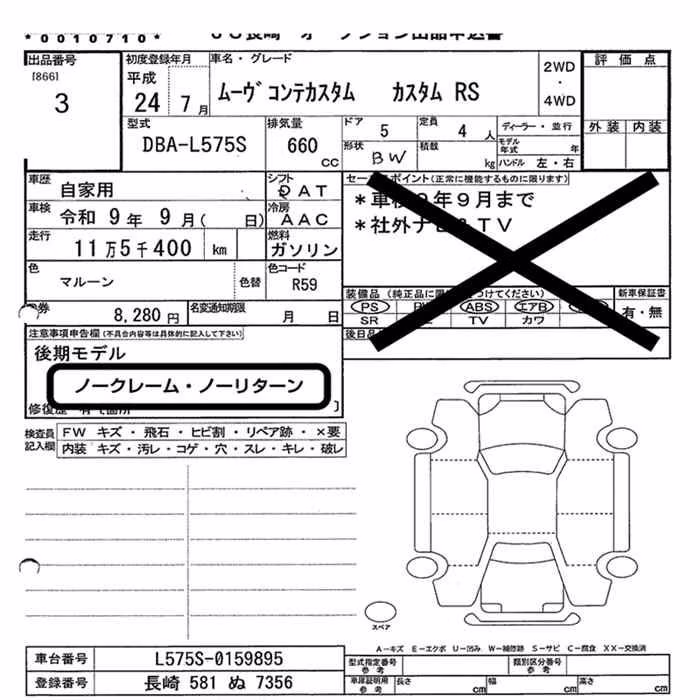 *0010710*
出品番号
[866]
3
初度登録年月
平成
24 7月
車名・グレード
ムーヴコンテカスタム カスタム RS
2WD
・
4WD
評価点
外装 内装
型式
DBA-L575S
排気量
660
CC
ドア
5
定員
4人
ディーラー・並行
形状
BW
積載
kg
モデル年式 年
ハンドル 左・右
車歴
自家用
シフト
DAT
車検
令和 9年 9月( 日)
冷房
AAC
走行
11万5千400 km
燃料
ガソリン
色
マルーン
色替
色コード
R59
券
8,280円
名変通知期限
月 日
セールスポイント(正常に機能するものに限ります)
*車検9年9月まで
*社外ナビ&TV
装備品
PS
ABS
エアB
SR
TV
カワ
新車保証書
有・無
後日品
注意事項申告欄(不具合内容等は具体的に記入して下さい)
後期モデル
ノークレーム・ノーリターン
検査員記入欄
FW キズ・飛石・ヒビ割・リペア跡・×要
内装 キズ・汚レ・コゲ・穴・スレ・キレ・破レ
スペア
A-キズ E-エクボ U-凹み W-補修跡 S-サビ C-腐食 XX-交換済
車台番号
L575S-0159895
登録番号
長崎 581 ぬ 7356
型式指定番号
参考
類別区分番号
参考
車庫証明用
参考
長さ cm
幅 cm
高さ cm